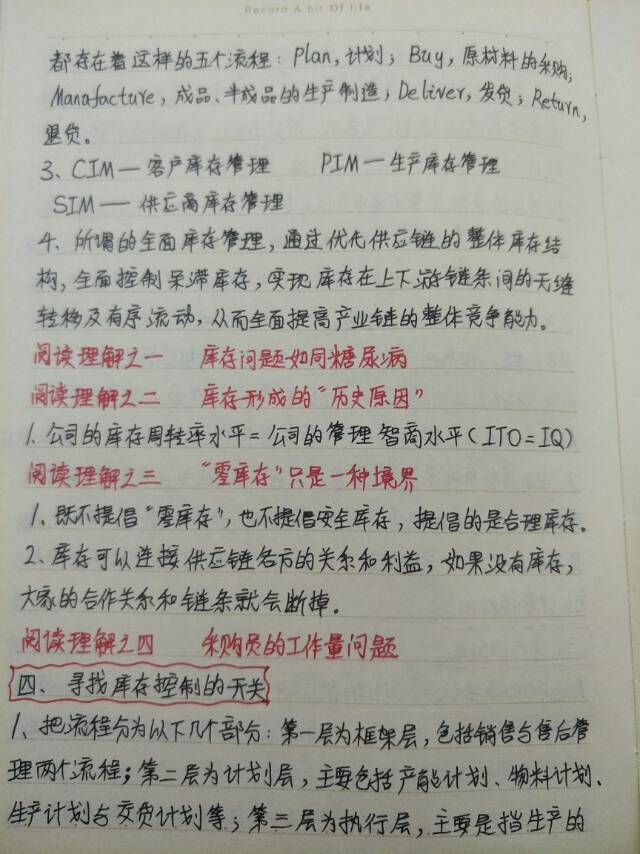 Record A bit Of life
都存在着这样的五个流程：Plan，计划；Buy，原材料的采购；
Manafacture，成品、半成品的生产制造；Deliver，发货；Return，
退货。
3、CIM—客户库存管理 PIM—生产库存管理
SIM—供应商库存管理
4、所谓的全面库存管理，通过优化供应链的整体库存结
构，全面控制呆滞库存，实现库存在上下游链条间的无缝
转移及有序流动，从而全面提高产业链的整体竞争能力。
阅读理解之一 库存问题如同糖尿病
阅读理解之二 库存形成的“历史原因”
1.公司的库存周转率水平=公司的管理智商水平(ITO=IQ)
阅读理解之三 “零库存”只是一种境界
1、既不提倡“零库存”，也不提倡安全库存，提倡的是合理库存。
2、库存可以连接供应链各方的关系和利益，如果没有库存，
大家的合作关系和链条就会断掉。
阅读理解之四 采购员的工作量问题
四、寻找库存控制的天关
1、把流程分为以下几个部分：第一层为框架层，包括销售与售后管
理两个流程；第二层为计划层，主要包括产能计划、物料计划、
生产计划与交货计划等；第三层为执行层，主要是指生产的